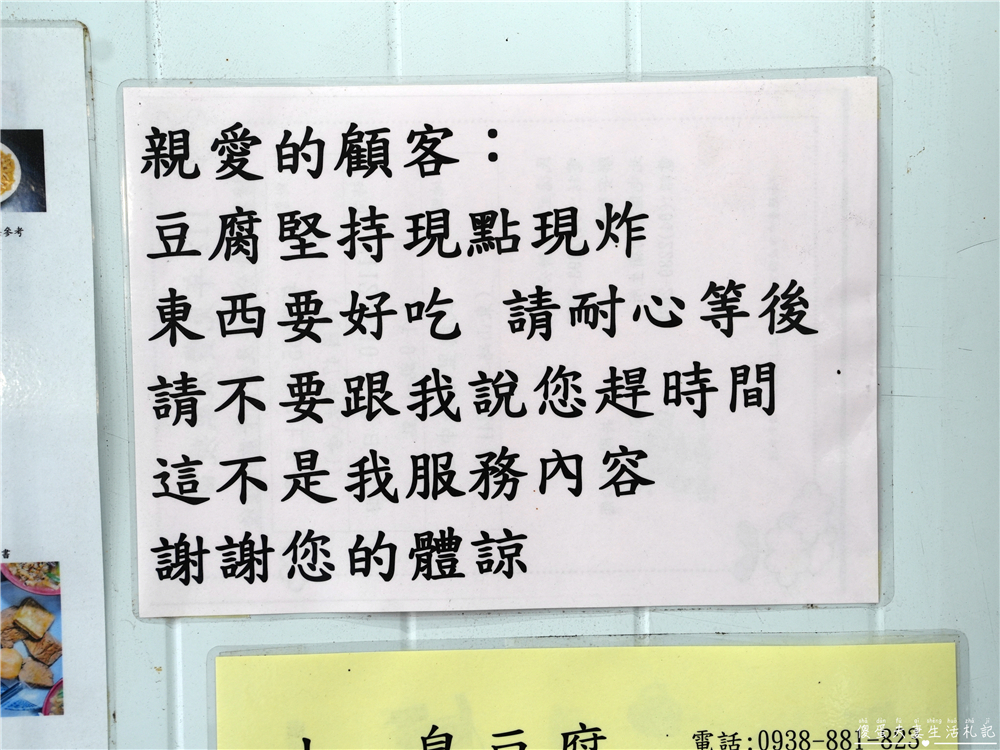 親愛的顧客：
豆腐堅持現點現炸
東西要好吃 請耐心等後
請不要跟我說您趕時間
這不是我服務內容
謝謝您的體諒
參考
書
臭豆腐
電話:0938-881-823
傻蛋夫妻生活札記